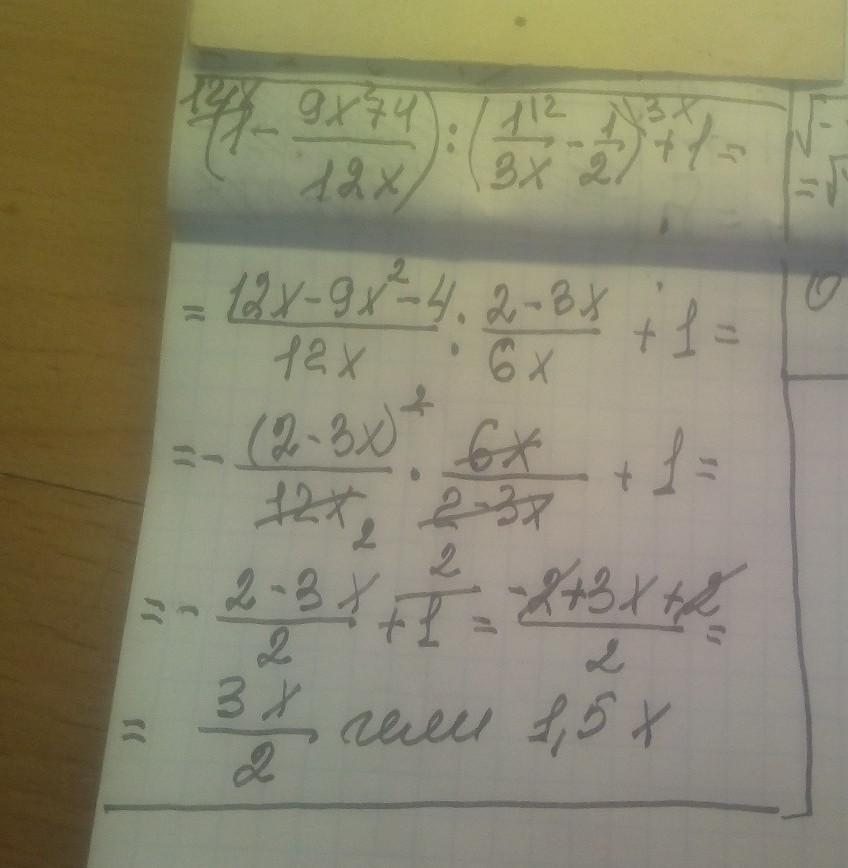 (1 - \frac{9x^2+4}{12x}) : (\frac{1}{3x} - \frac{1}{2}) + 1 =
= \frac{12x - 9x^2 - 4}{12x} : \frac{2 - 3x}{6x} + 1 =
= - \frac{(2 - 3x)^2}{12x} · \frac{6x}{2 - 3x} + 1 =
= - \frac{2 - 3x}{2} + 1 = \frac{-2 + 3x + 2}{2} =
= \frac{3x}{2} или 1,5x